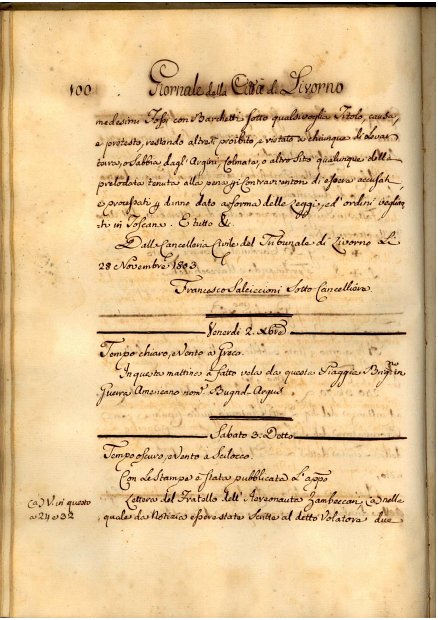 100 Giornale della Città di Livorno
medesimi Fossi con Barchetti sotto qualsivoglia Titolo, causa,
e pretesto, restando altresì proibito, e vietato a chiunque di levar
terra, o Sabbia dagl'Argini, Colmata, o altro Sito qualunque della
prelodata tenuta alla pena p i Contravventori di essere accusati
e processati p danno dato a forma delle Leggi, ed ordini veglian
ti in Toscana. E tutto &.
Dalla Cancelleria Civile del Tribunale di Livorno Li
28 Novembre 1803
Francesco Salciccioni Sotto Cancelliere
Venerdi 2. Xbre
Tempo chiaro, e Vento a Greco.
In questa mattina à fatto vela da questa Spiaggia Brig.no in
Guerra Americano nom.o
Sabato 3. Detto
Tempo oscuro, e Vento a Scilocco.
Con Le Stampe è stata pubblicata L'appo
Lettera del Fratello dell'Aereonauta Zambeccari (a) nelle
quale da Notizia essere state Scritte al detto Volatore due
(a) V. in questo
a 24 e 32